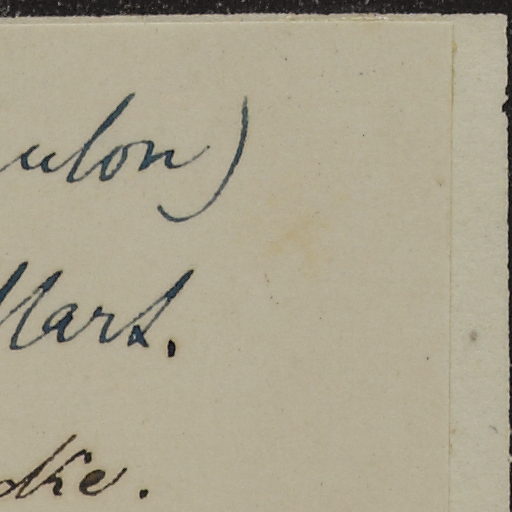 ulon)
Mars.
ke.